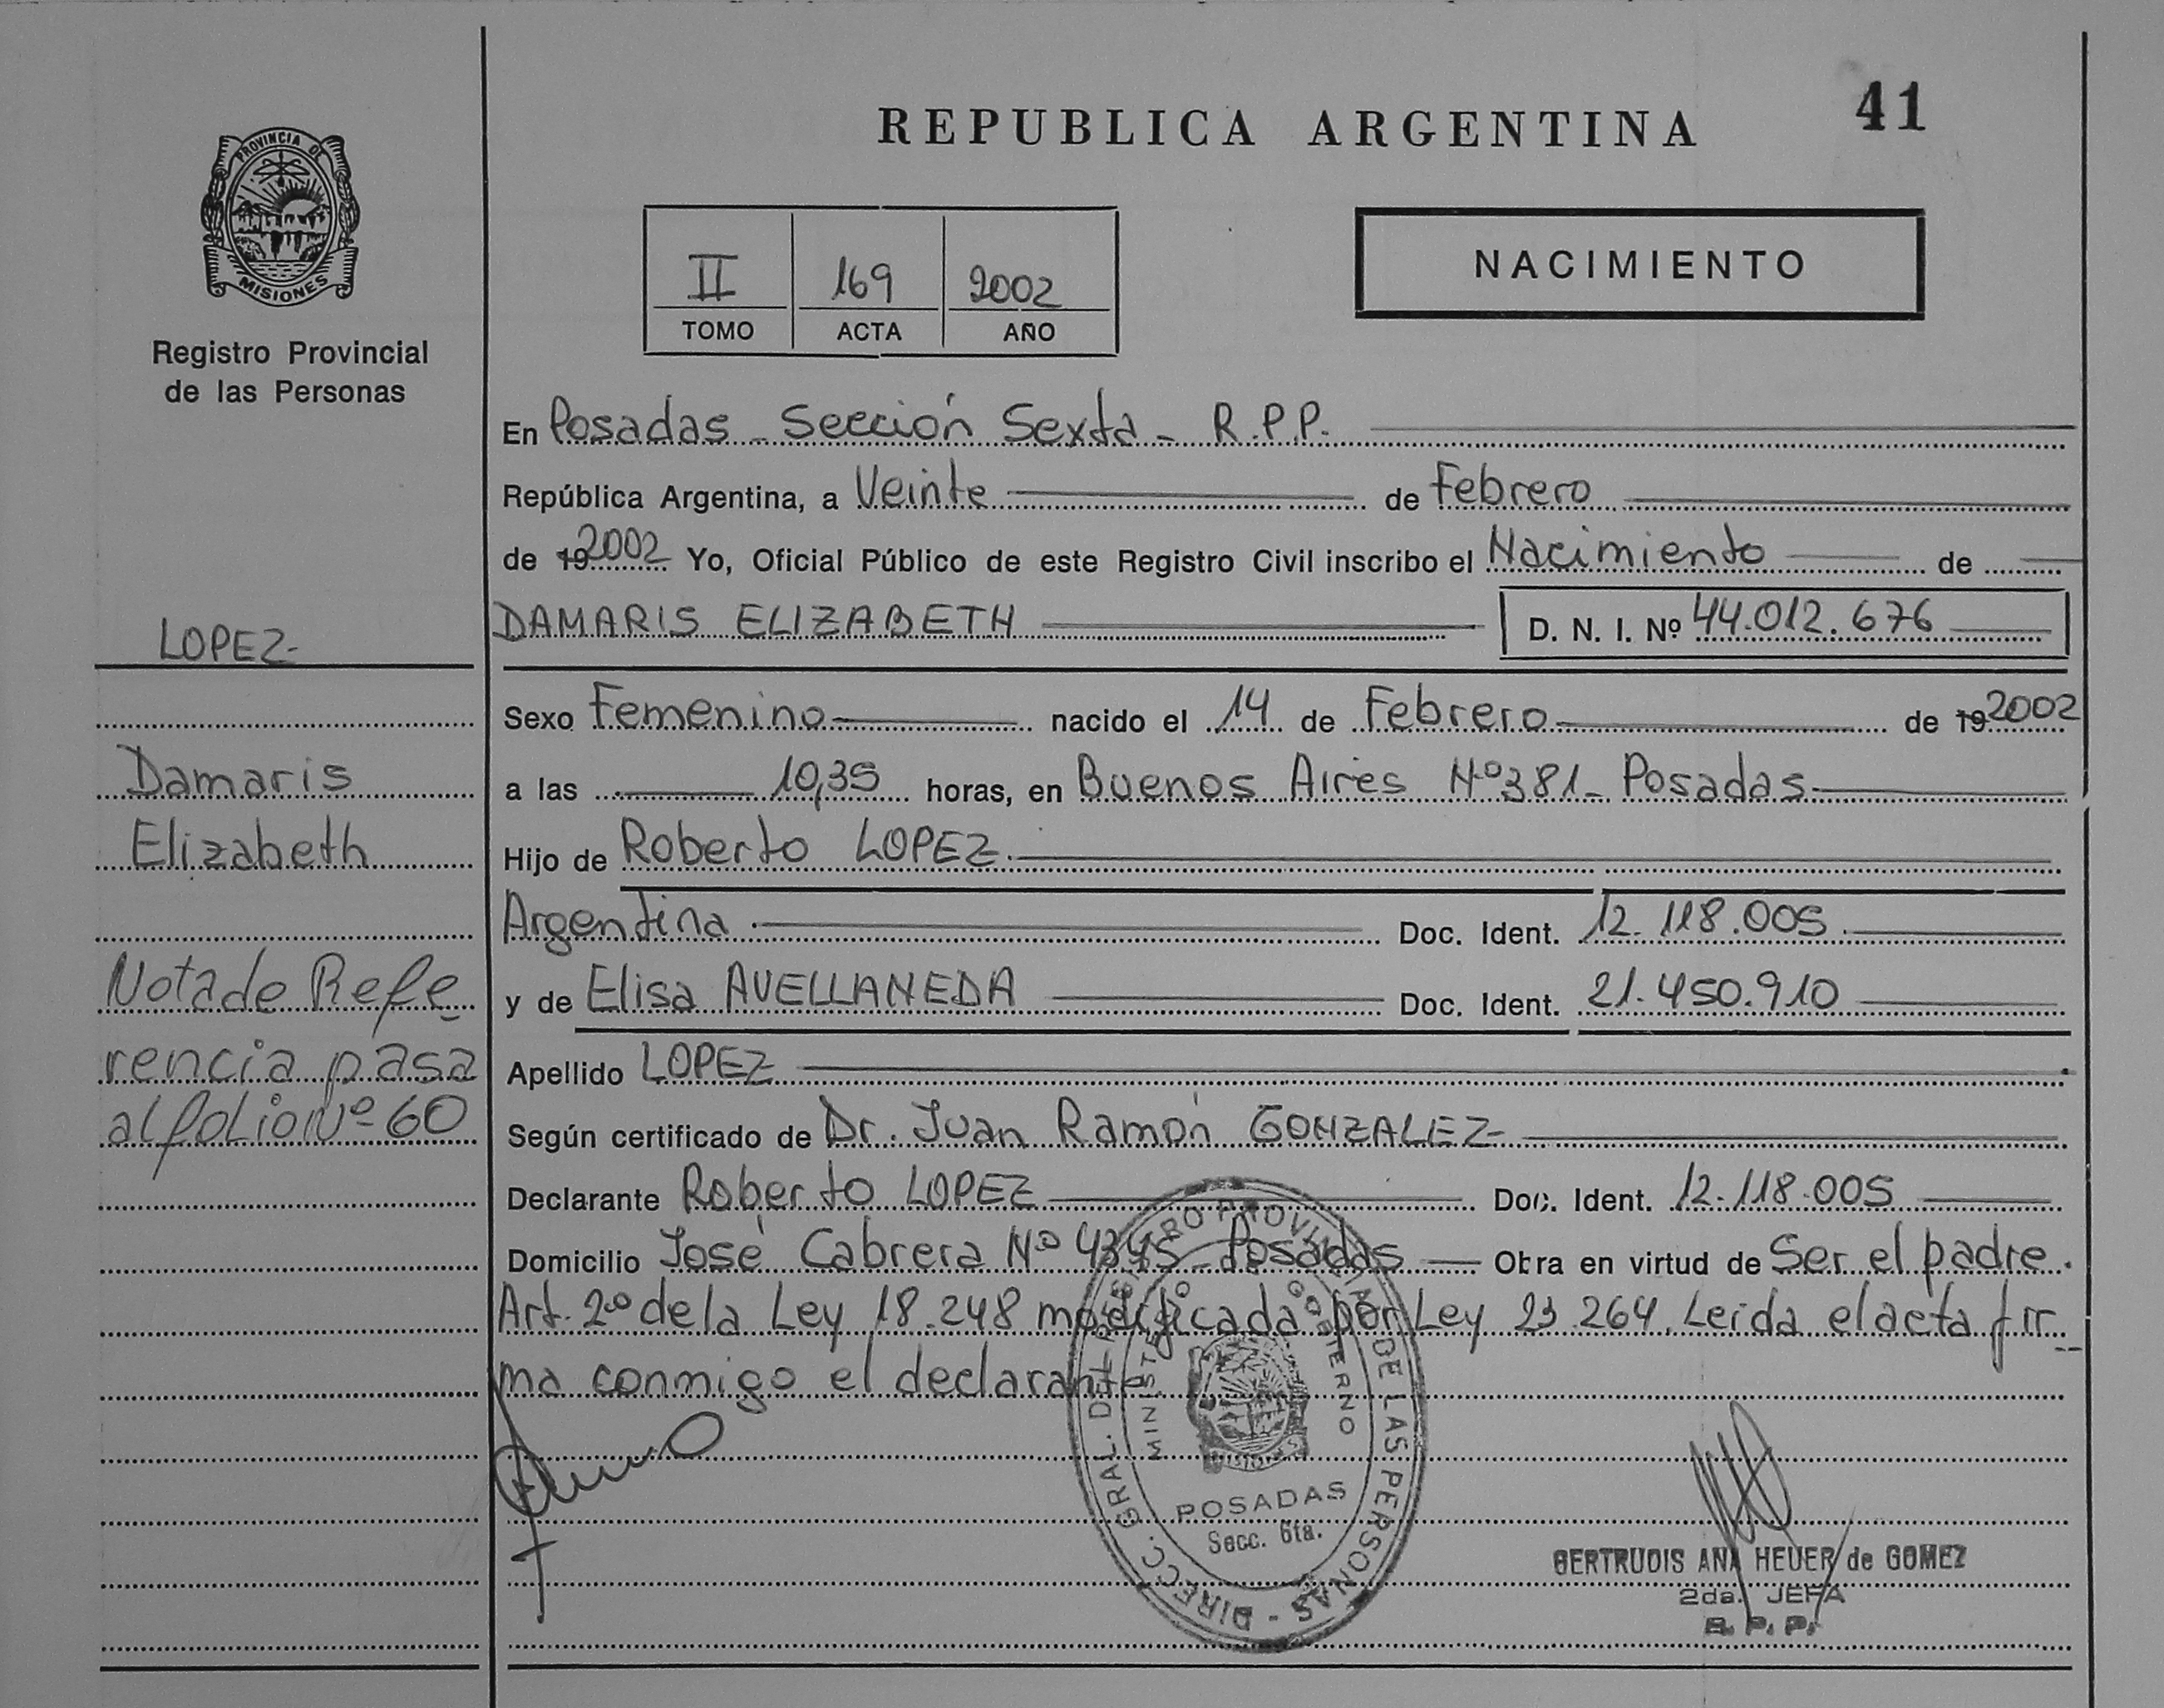 REPUBLICA ARGENTINA
41
PROVINCIA DE
MISIONES
Registro Provincial
de las Personas
II 169 2002
TOMO ACTA AÑO
NACIMIENTO
En Posadas - Sección Sexta - R.P.P.
República Argentina, a Veinte de Febrero
de 19 2002 Yo, Oficial Público de este Registro Civil inscribo el Nacimiento de
DAMARIS ELIZABETH D. N. I. Nº 44.012.676
Sexo Femenino nacido el 14 de Febrero de 19 2002
a las 10,35 horas, en Buenos Aires Nº 381 - Posadas
Hijo de Roberto LOPEZ
Argentina Doc. Ident. 12.118.005
y de Elisa AVELLANEDA Doc. Ident. 21.450.910
Apellido LOPEZ
Según certificado de Dr. Juan Ramón GONZALEZ
Declarante Roberto LOPEZ Doc. Ident. 12.118.005
Domicilio José Cabrera Nº 4345 - Posadas Obra en virtud de Ser el padre.
Art. 2º de la Ley 18.248 modificada por Ley 23.264. Leída el acta fir
ma conmigo el declarante
LOPEZ-
Damaris
Elizabeth
Nota de Refe
rencia pasa
al folio Nº 60
DIRECC. GRAL. DEL REGISTRO PROVINCIAL DE LAS PERSONAS -
MINISTERIO DE GOBIERNO
MISIONES
POSADAS
Secc. 6ta.
GERTRUDIS ANA HEUER de GOMEZ
2da. JEFA
R. P. P.